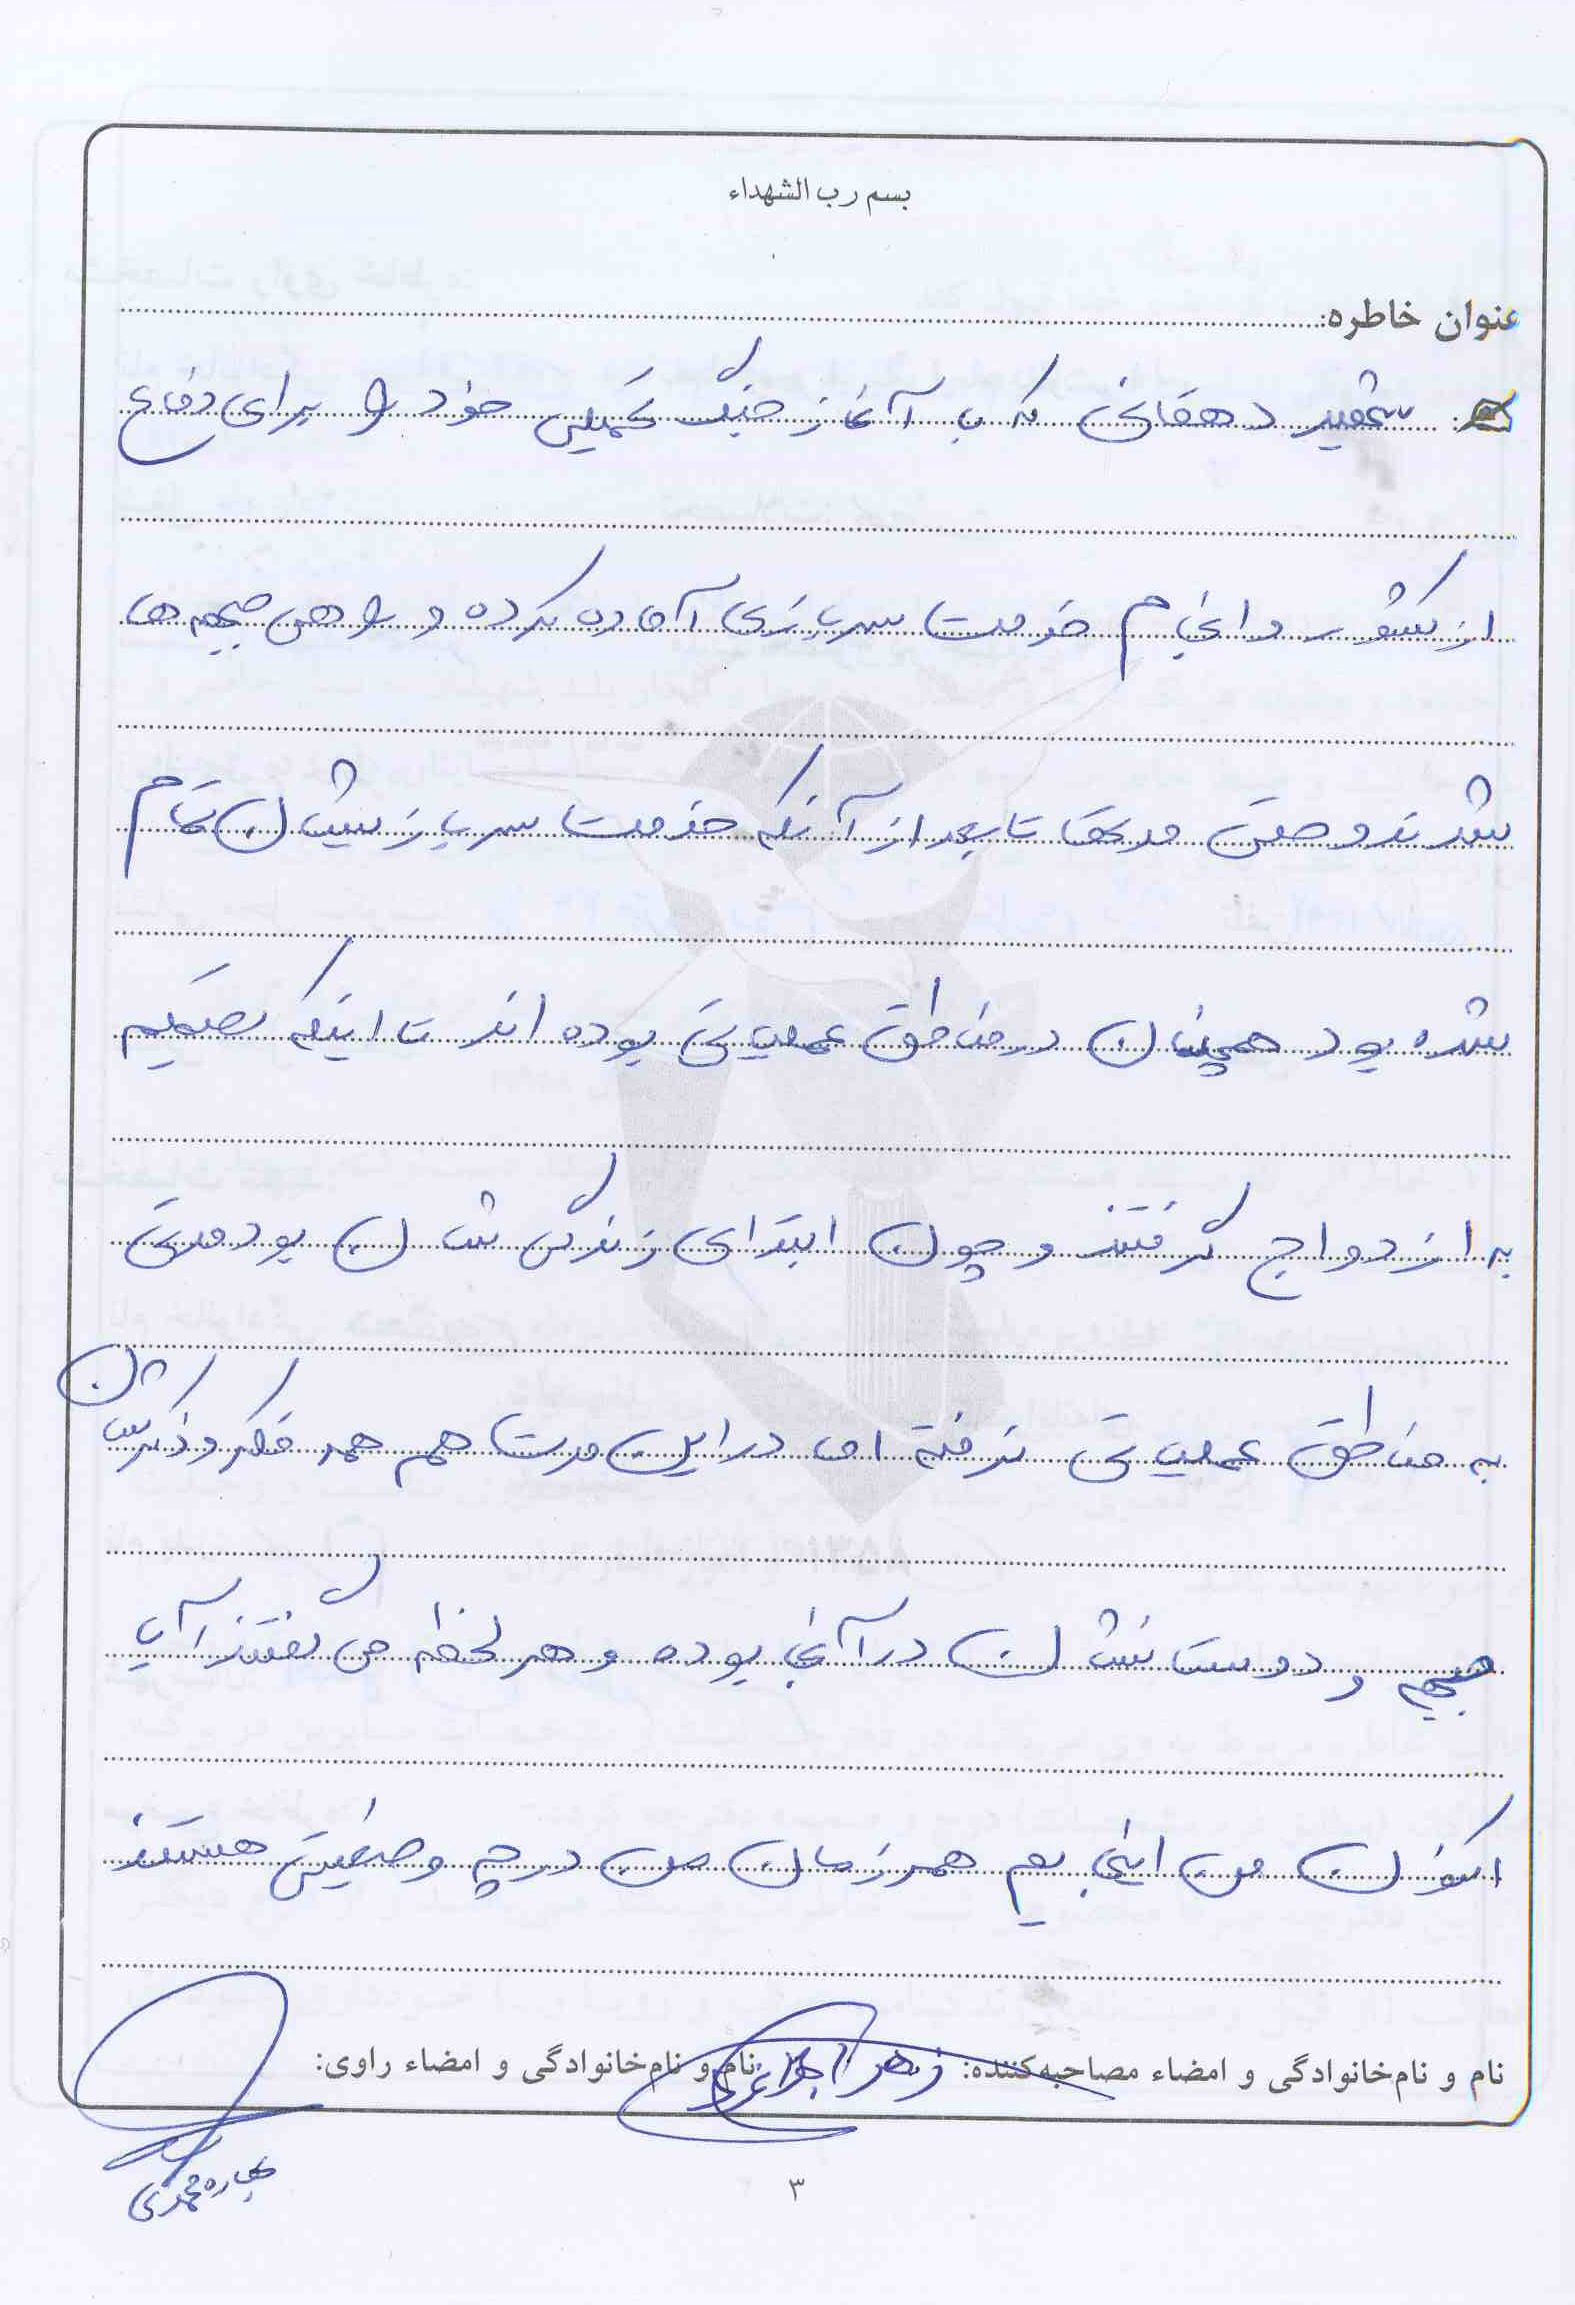 بسم رب الشهداء
عنوان خاطره:
شهید دهقانی که با آغاز جنگ تحمیلی خود را برای دفاع
از کشور و انجام خدمت سربازی آماده کرده و راهی جبهه ها
شدند و حتی مدتها تا بعد از آنکه خدمت سربازیشان تمام
شده بود همچنان در مناطق عملیاتی بوده اند تا اینکه تصمیم
به ازدواج گرفتند و چون ابتدای زندگی شان بود مدتی
به مناطق عملیاتی نرفته اما در این مدت هم همه فکر و ذکرشان
جبهه و دوستانشان در آنجا بوده و هر لحظه می گفتند آیا
اکنون من اینجایم همرزمان من در چه وضعیتی هستند
نام و نام‌خانوادگی و امضاء مصاحبه‌کننده: زهرا نام و نام‌خانوادگی و امضاء راوی:
بهاره محمدی
۳